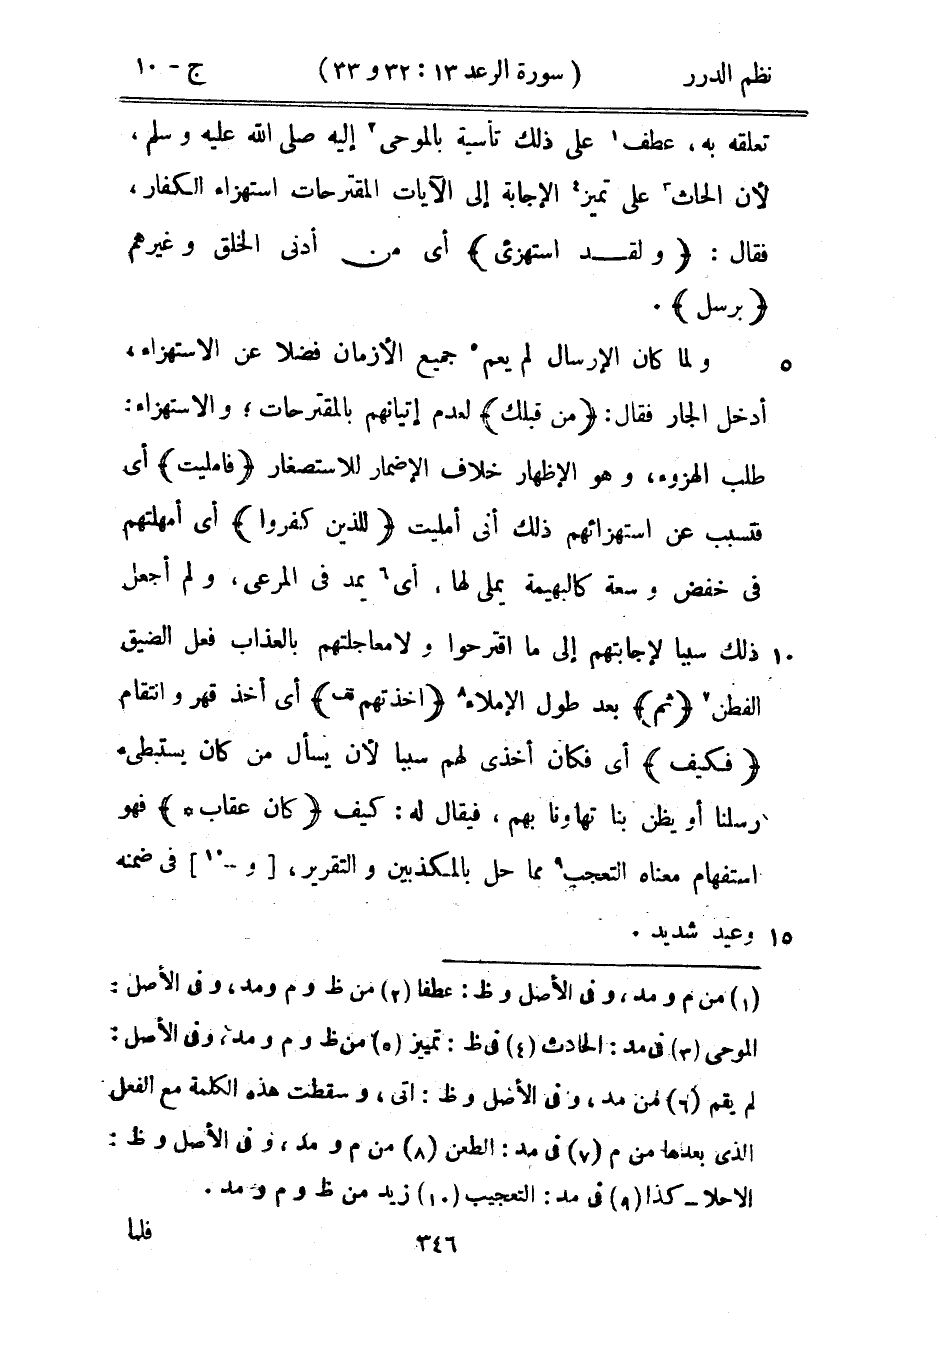 نظم الدرر ( سورة الرعد ١٣ : ٣٢ و ٣٣ ) ج - ١٠
تعلقه به ، عطف ١ على ذلك تأسية بالموحى ٢ إليه صلى الله عليه و سلم ،
لأن الحاث ٣ على تميز ٤ الإجابة إلى الآيات المقترحات استهزاء الكفار ،
فقال : ﴿ و لقد استهزئ ﴾ أى من أدنى الخلق و غيرهم
﴿ برسل ﴾ .
٥ و لما كان الإرسال لم يعم ٥ جميع الأزمان فضلا عن الاستهزاء ،
أدخل الجار فقال : ﴿ من قبلك ﴾ لعدم إتيانهم بالمقترحات ؛ و الاستهزاء :
طلب الهزوء ، و هو الإظهار خلاف الإضمار للاستصغار ﴿ فامليت ﴾ أى
فتسبب عن استهزائهم ذلك أنى أمليت ﴿ للذين كفروا ﴾ أى أمهلتهم
فى خفض و سعة كالبهيمة يملى لها ، أى ٦ يمد فى المرعى ، و لم أجعل
١٠ ذلك سببا لإجابتهم إلى ما اقترحوا و لا معاجلتهم بالعذاب فعل الضيق
الفطن ٧ ﴿ ثم ﴾ بعد طول الإملاء ٨ ﴿ اخذتهم قف ﴾ أى أخذ قهر و انتقام
﴿ فكيف ﴾ أى فكان أخذى لهم سببا لأن يسأل من كان يستبطىء
رسلنا أو يظن بنا تهاونا بهم ، فيقال له : كيف ﴿ كان عقاب * ﴾ فهو
استفهام معناه التعجب ٩ مما حل بالمكذبين و التقرير ، [ و - ١٠ ] فى ضمنه
١٥ وعيد شديد .
(١) من م و مد ، و فى الأصل و ظ : عطفا (٢) من ظ و م ومد ، و فى الأصل :
الموحى (٣) فى مد : الحادث (٤) فى ظ : تمييز (٥) من ظ و م و مد ، وفى الأصل :
لم يقم (٦) من مد ، و فى الأصل و ظ : اتى ، و سقطت هذه الكلمة مع الفعل
الذى بعدها من م (٧) فى مد : الطعن (٨) من م و مد ، و فى الأصل و ظ :
الاحلا ـ كذا (٩) فى مد : التعجيب (١٠) زيد من ظ و م و مد .
٣٤٦ فلما